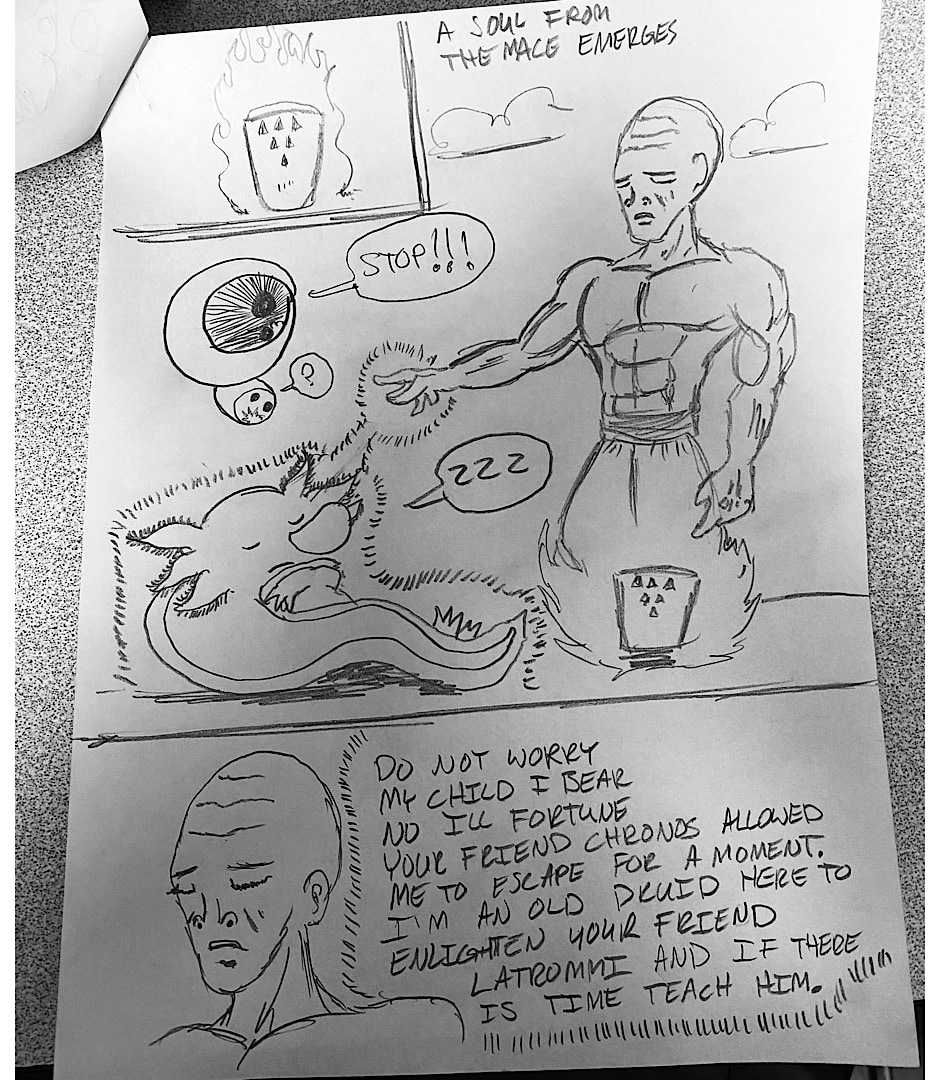 A SOUL FROM
THE MACE EMERGES
STOP!!!
?
ZZZ
DO NOT WORRY
MY CHILD I BEAR
NO ILL FORTUNE
YOUR FRIEND CHRONOS ALLOWED
ME TO ESCAPE FOR A MOMENT.
I'M AN OLD DRUID HERE TO
ENLIGHTEN YOUR FRIEND
LATROMMI AND IF THERE
IS TIME TEACH HIM.